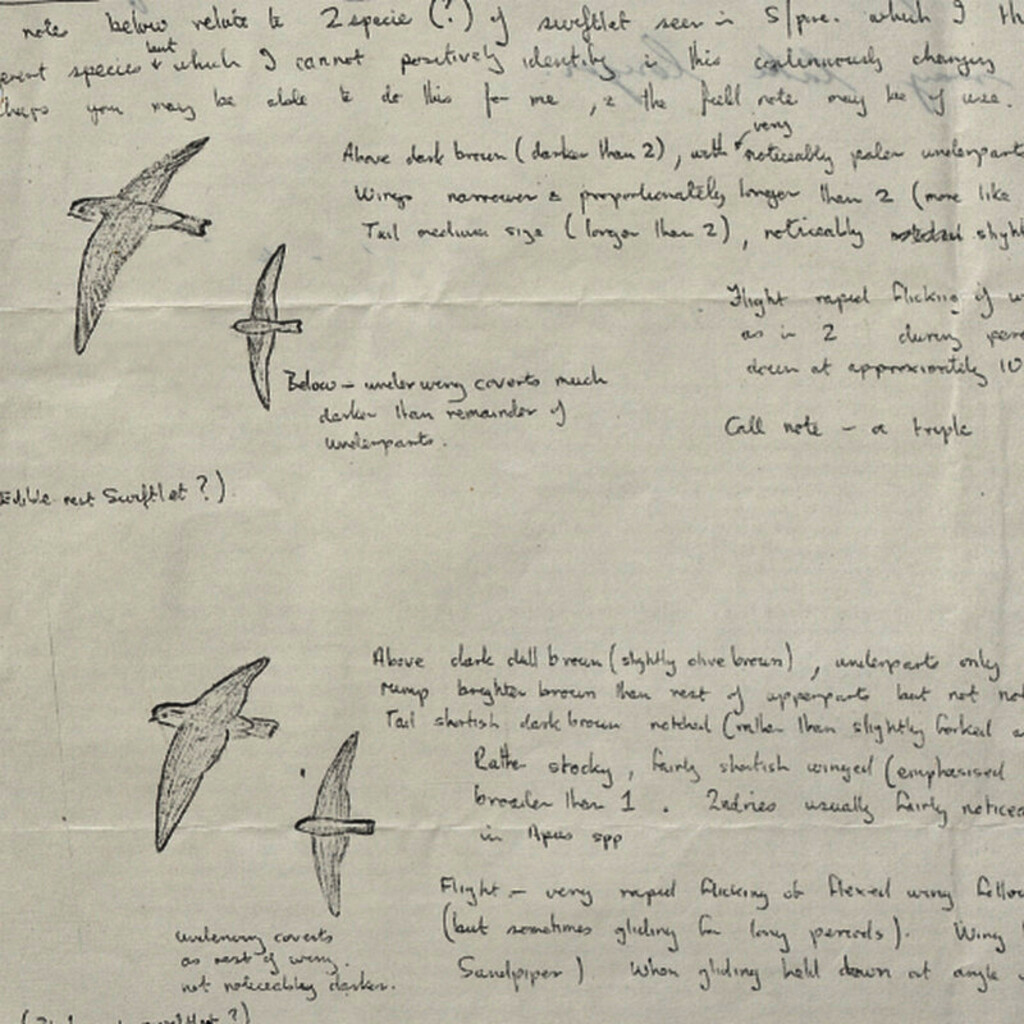 note below relate to 2 specie (?) of swiftlet seen in S/pore. which I th
erent species but which I cannot positively identify in this continuously changing
erhaps you may be able to do this for me, & the field note may be of use.
Above dark brown (darker than 2), with very noticeably paler underpart
Wings narrower & proportionately longer than 2 (more like
Tail medium size (longer than 2), noticeably slight
Flight rapid flicking of w
as in 2 during peri
down at approximately 10
Below - under wing coverts much
darker than remainder of
underparts.
Call note - a triple
Edible nest Swiftlet?)
Above dark dull brown (slightly olive brown), underparts only
rump brighter brown than rest of upperparts but not not
Tail shortish dark brown notched (rather than slightly forked a
Rather stocky, fairly shortish winged (emphasised
broader than 1. 2ndries usually fairly noticea
in Apus spp
Flight - very rapid flicking of flexed wing follow
(but sometimes gliding for long periods). Wing
Sandpiper) When gliding held down at angle
underwing coverts
as rest of wing.
not noticeably darker.
swiftlet?)